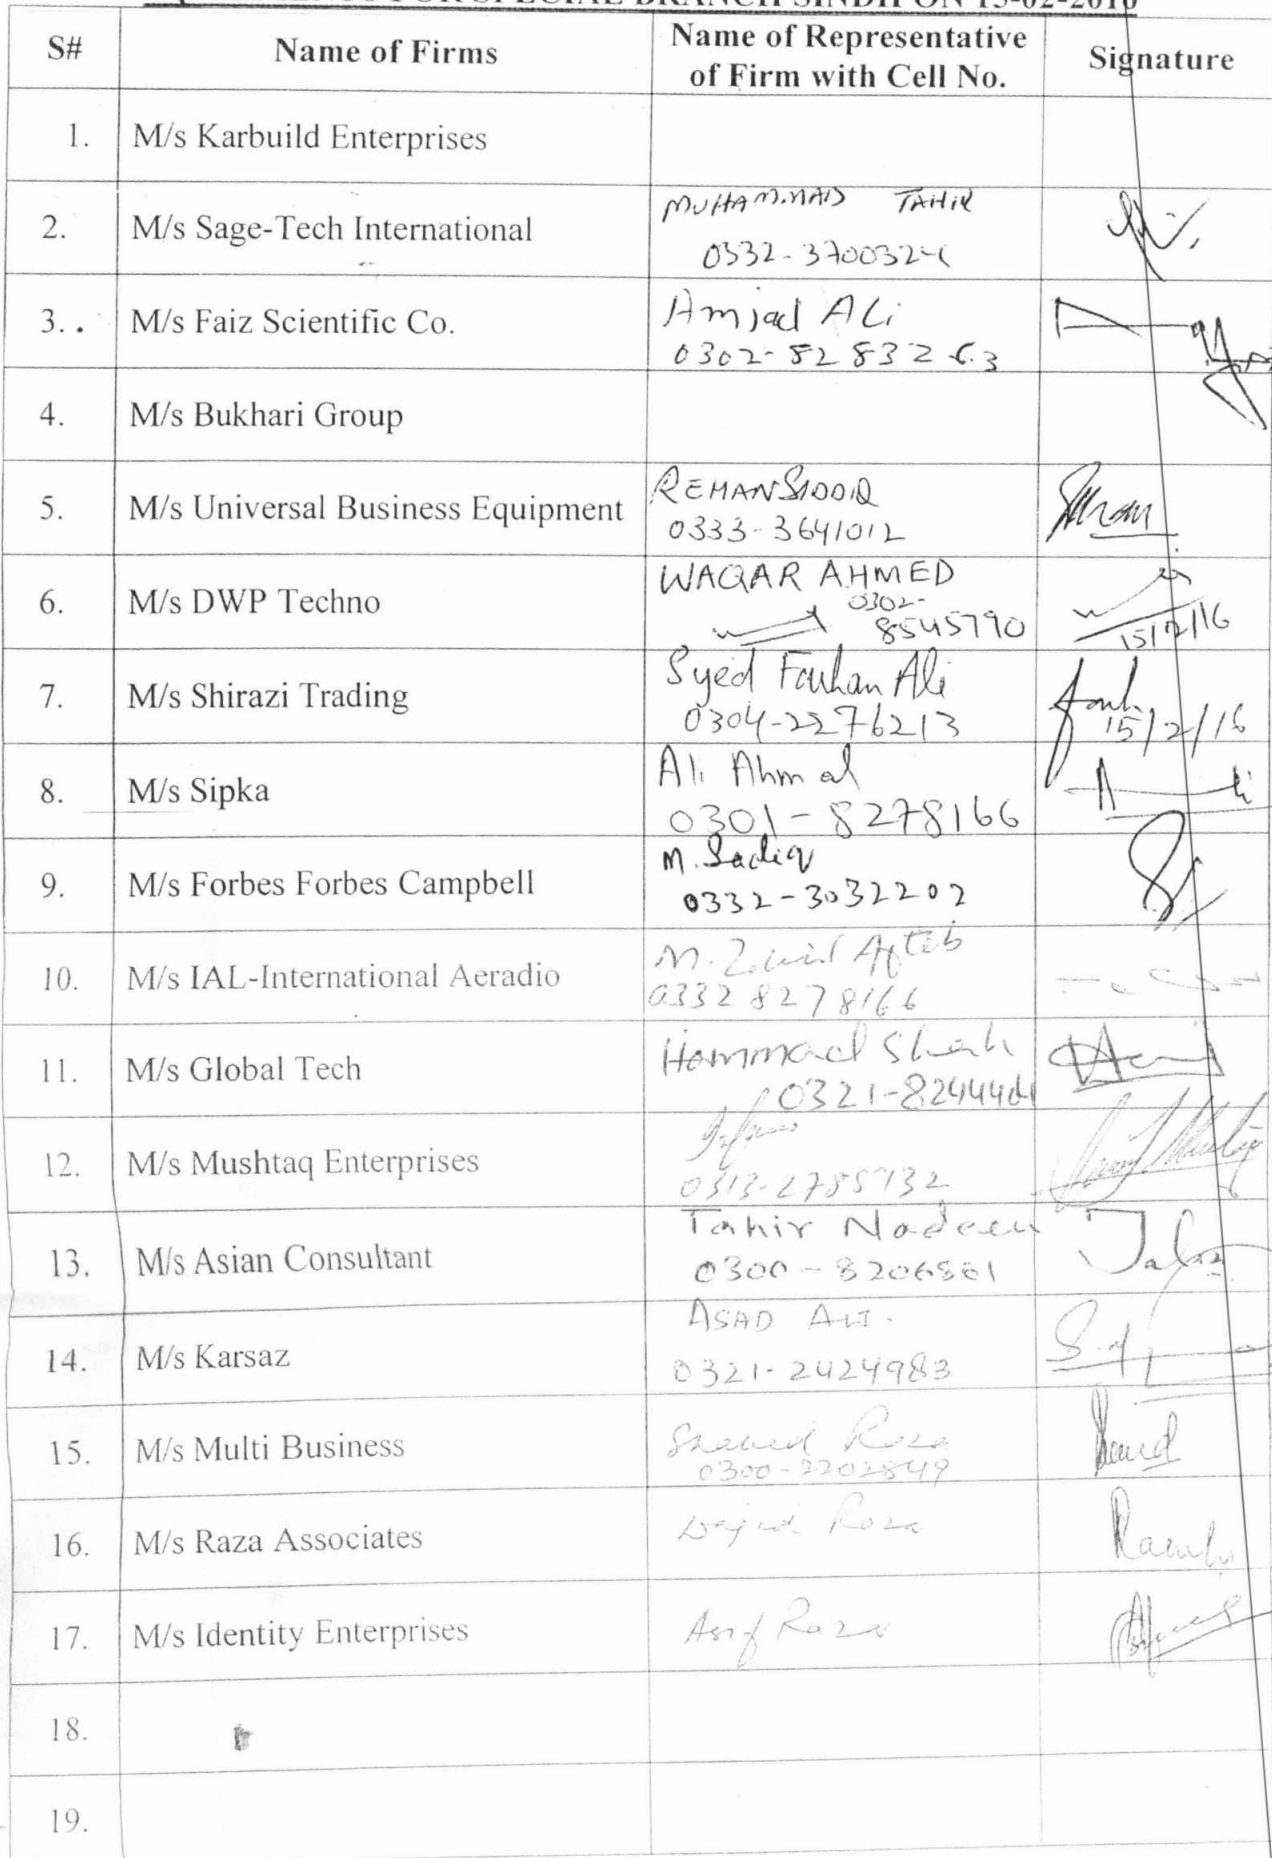 FOR SPECIAL BRANCH SINDH ON 15-02-2016
S# Name of Firms Name of Representative of Firm with Cell No. Signature
1. M/s Karbuild Enterprises
2. M/s Sage-Tech International MUHAMMAD TAHIR
3. M/s Faiz Scientific Co. Amjad ALi
0302-
4. M/s Bukhari Group
5. M/s Universal Business Equipment REHAN SIDDIQ
0333-3641012
6. M/s DWP Techno WAQAR AHMED
0302-
8545790 15/2/16
7. M/s Shirazi Trading Syed Farhan Ali
0304-2276213 15/2/16
8. M/s Sipka Ali Ahmad
0301-8278166
9. M/s Forbes Forbes Campbell M. Sadiq
0332-3032202
10. M/s IAL-International Aeradio M. Aftab
03328278166
11. M/s Global Tech Hammad Shah
12. M/s Mushtaq Enterprises
0313-2785732
13. M/s Asian Consultant Tahir Nadeem
0300-8206861
14. M/s Karsaz ASAD ALI.
0321-2424983
15. M/s Multi Business Raza
0300-2202849
16. M/s Raza Associates Wajid Raza
17. M/s Identity Enterprises Asif Raza
18.
19.